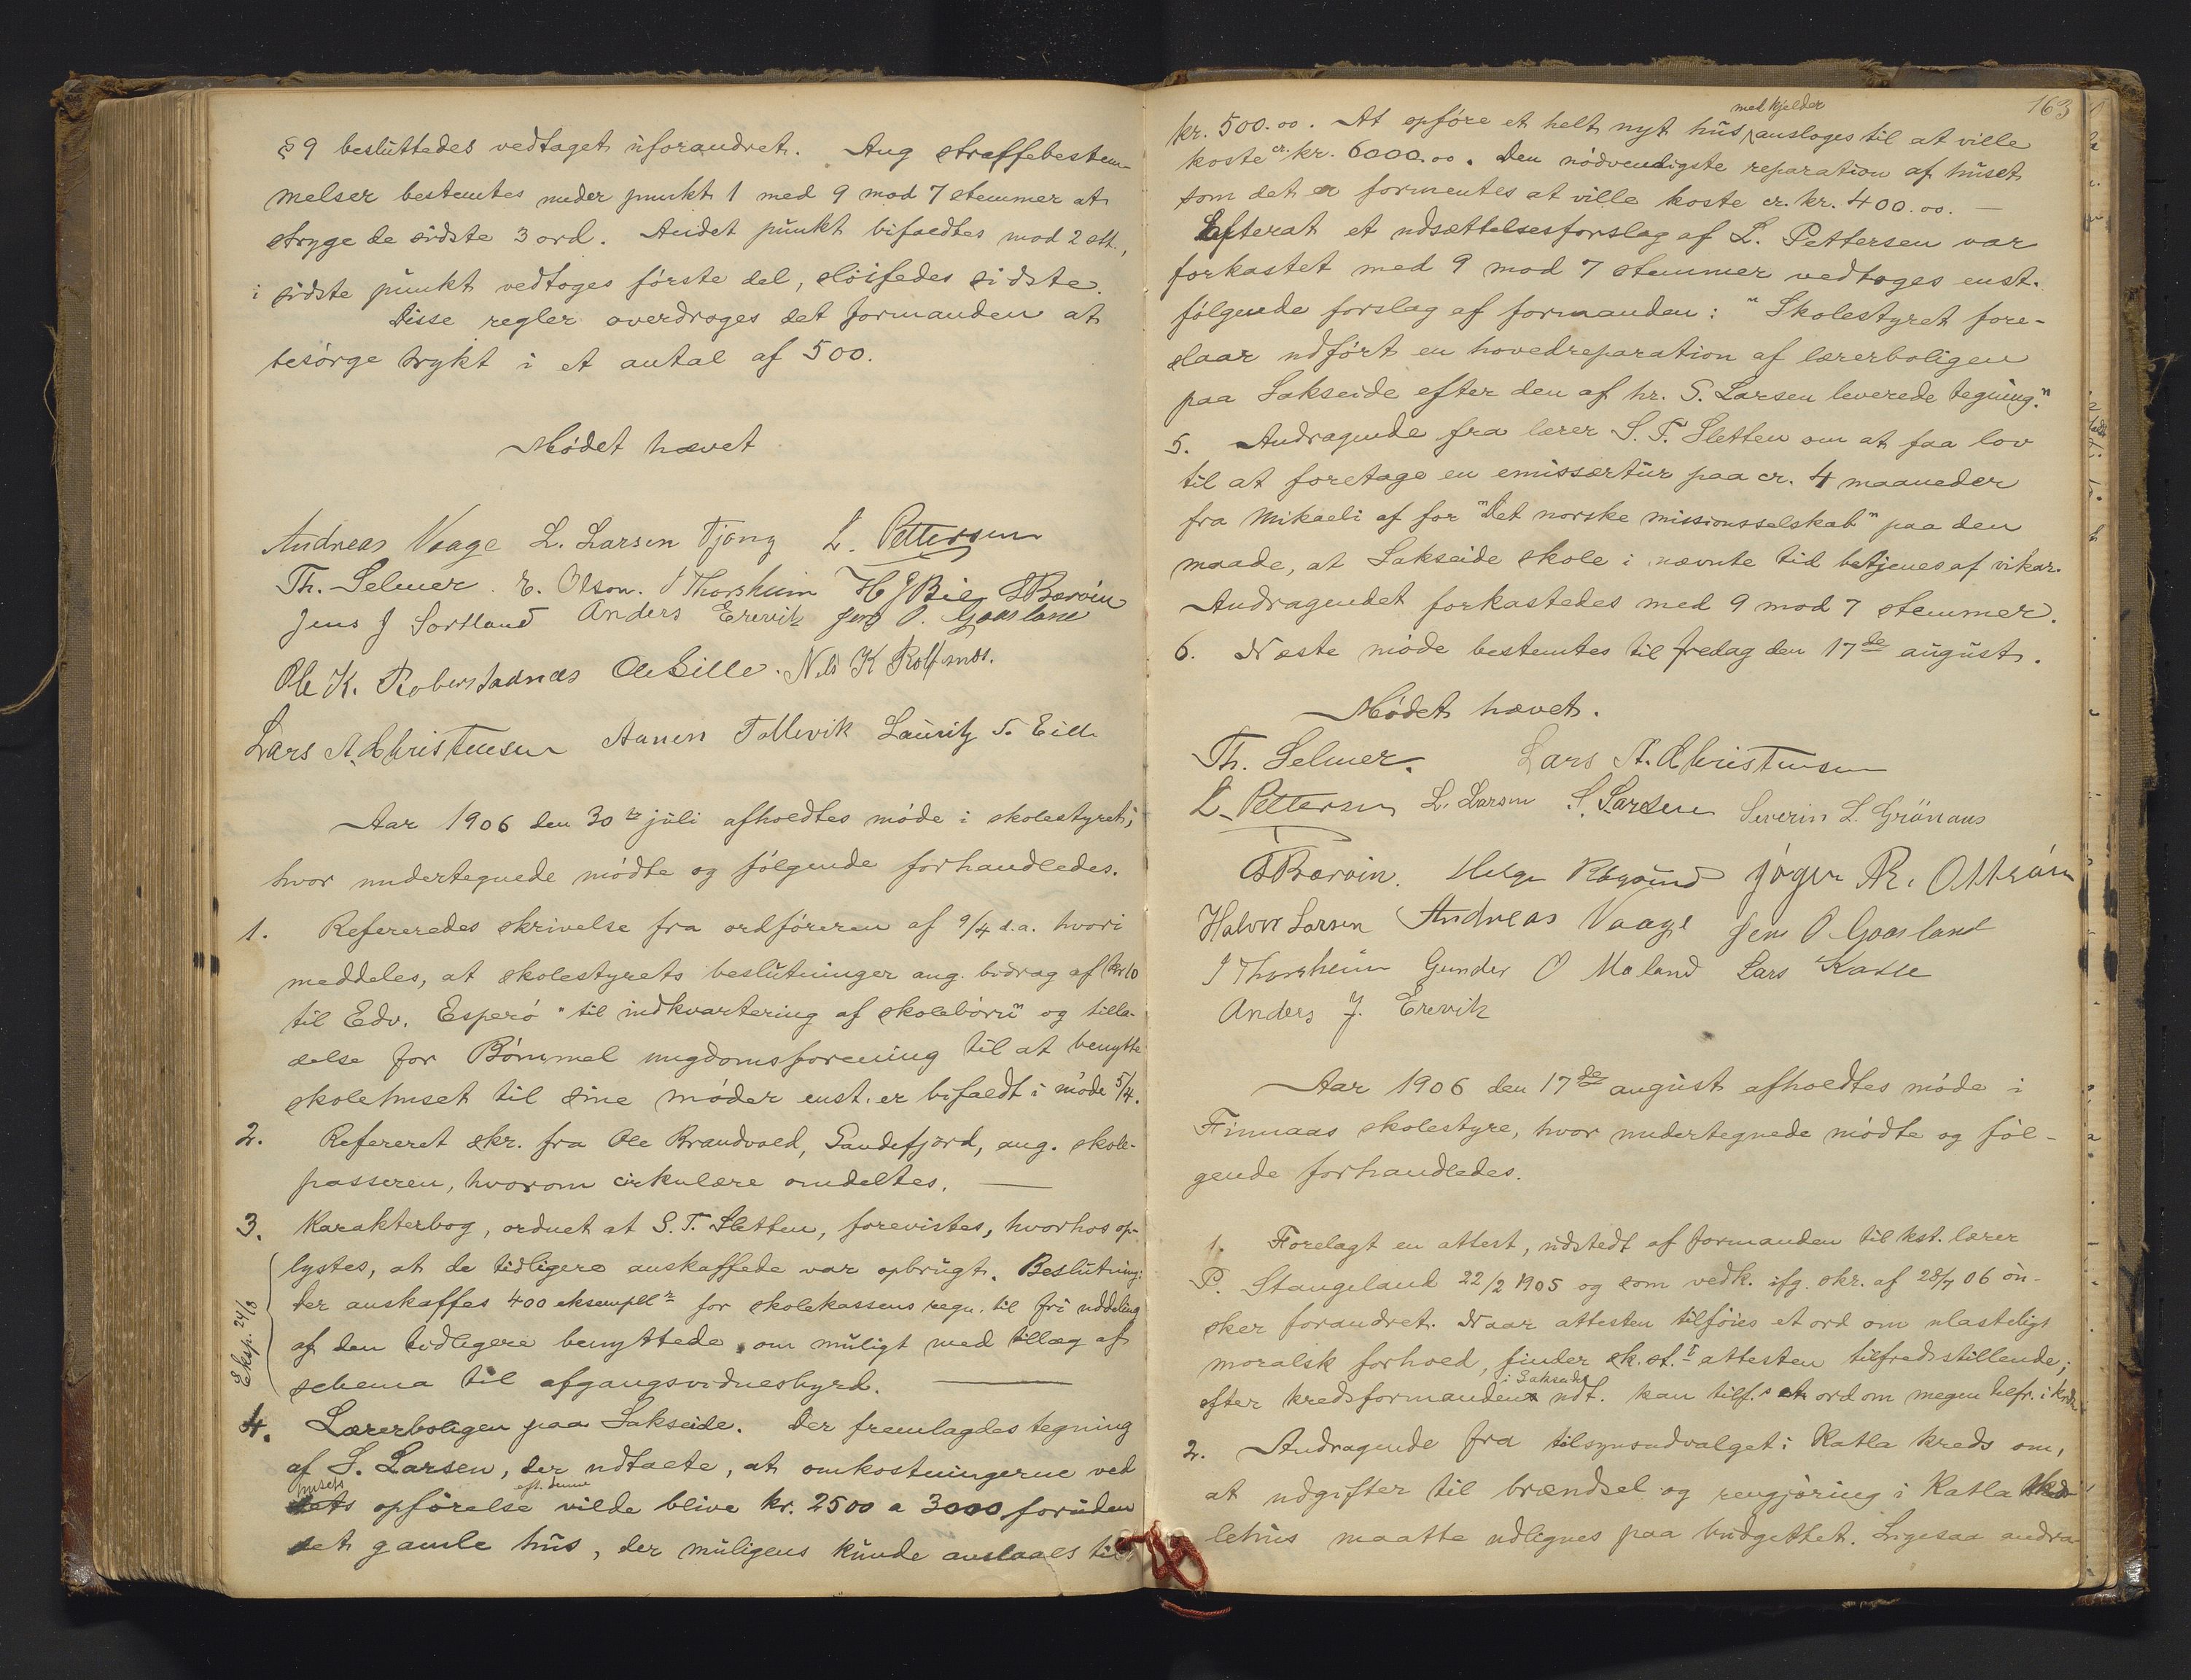 § 9 besluttedes vedtaget uforandret. Ang straffebestem-
melser bestemtes under punkt 1 med 9 mod 7 stemmer at
stryge de sidste 3 ord. Andet punkt bifaldtes mod 2 stt.,
i sidste punkt vedtoges første del, sløifedes sidste.
Disse regler overdroges det formanden at
besørge trykt i et antal af 500.
Mødet hævet
Andreas Vaage L. Larsen Tjong L. Pettersen
Th. Selmer. E. Olson. J Thorsheim H J Bie S Bærøin
Jens J Sortland Anders Erevik Jens O. Gaasland
Ole K. Roberstadnæs Ole Eille. Nils K Rolfsnæs.
Lars A. Christensen Aanen Tollevik Lauritz T. Eille
Aar 1906 den 30te juli afholdtes møde i skolestyret,
hvor undertegnede mødte og følgende forhandledes.
1. Refereredes skrivelse fra ordføreren af 9/4 d.a. hvori
meddeles, at skolestyrets beslutninger ang. bidrag af kr 10
til Edv. Esperø "til indkvartering af skolebørn" og tilla-
delse for Bømmel ungdomsforening til at benytte
skolehuset til sine møder enst. er bifaldt i møde 5/4.
2. Refereret skr. fra Ole Brandvold, Sandefjord, ang. skole-
passeren, hvorom cirkulære omdeltes.
3. Karakterbog, ordnet at S. T. Sletten, forevistes, hvorhos op-
lystes, at de tidligere anskaffede var opbrugt. Beslutning:
Der anskaffes 400 eksempll r for skolekassens regn. til fri uddeling
af den tidligere benyttede, om muligt med tillæg af
schema til afgangsvidnesbyrd.
Eksp. 24/8
4. Lærerboligen paa Lakseide. Der fremlagdes tegning
af S. Larsen, der udtalte, at omkostningerne ved
husets opførelse eft. denne vilde blive kr. 2500 a 3000 foruden
det gamle hus, der muligens kunde anslaaes til
163
kr. 500.00. At opføre et helt nyt hus med kjelder ansloges til at ville
koste cr. kr. 6000.00. Den nødvendigste reparation af huset
som det er formentes at ville koste cr. kr. 400.00. —
Efterat et udsættelsesforslag af L. Pettersen var
forkastet med 9 mod 7 stemmer vedtoges enst.
følgende forslag af formanden: "Skolestyret fore-
slaar udført en hovedreparation af lærerboligen
paa Lakseide efter den af hr. S. Larsen leverede tegning."
5. Andragende fra lærer S. T. Sletten om at faa lov
til at foretage en emissærtur paa cr. 4 maaneder
fra Mikaeli af for "Det norske missionsselskab" paa den
maade, at Lakseide skole i nævnte tid betjenes af vikar.
Andragendet forkastedes med 9 mod 7 stemmer.
6. Næste møde bestemtes til fredag den 17de august.
Mødet hævet.
Th. Selmer. Lars A. Christensen
L. Pettersen L. Larsen S. Larsen Severin L. Grønaas
S Bærøin. Helge Røgsund Jøger R.
Halvor Larsen Andreas Vaage Jens O Gaasland
J Thorsheim Gunder O Maland Lars Katle
Anders J. Erevik
Aar 1906 den 17de august afholdtes møde i
Finnaas skolestyre, hvor undertegnede mødte og føl-
gende forhandledes.
1. Forelagt en attest, udstedt af formanden til kst. lærer
P. Stangeland 22/2 1905 og som vedk. ifg. skr. af 28/4 06 øn-
sker forandret. Naar attesten tilføies et ord om ulasteligt
moralsk forhold, finder sk. st. attesten tilfredsstillende;
efter kredsformanden i Lakseide udt. kan tilf.s et ord om megen tilfr. i kreds
2. Andragende fra tilsynsudvalget i Katla kreds om,
at udgifter til brændsel og rengjøring i Katla sko-
lehus maatte udlignes paa budgettet. Ligesaa andra-